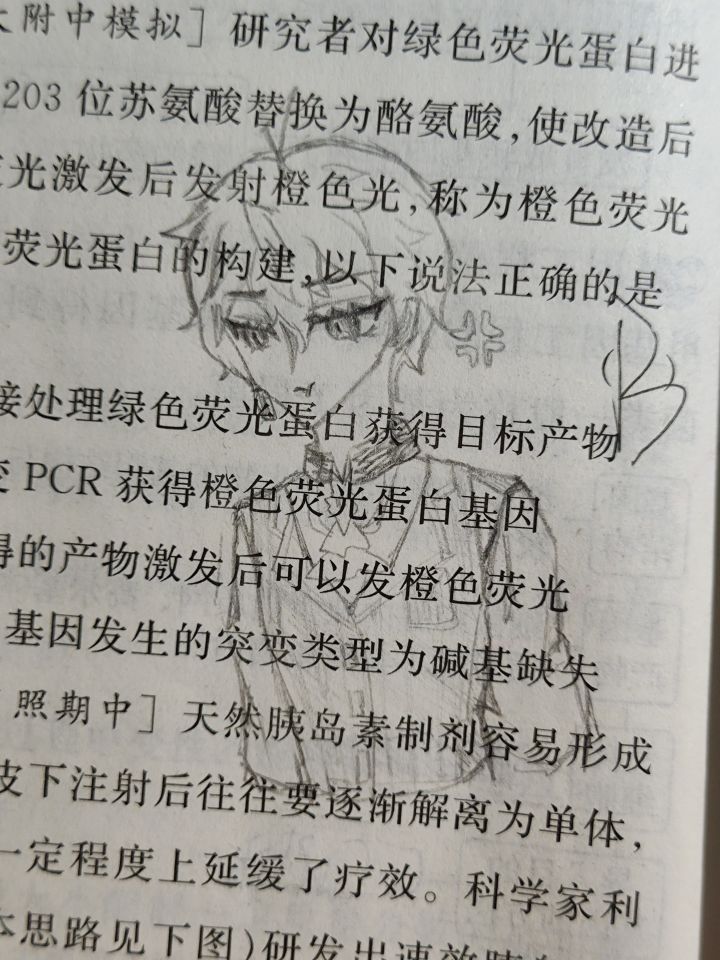 大附中模拟］研究者对绿色荧光蛋白进
203 位苏氨酸替换为酪氨酸,使改造后
光激发后发射橙色光,称为橙色荧光
荧光蛋白的构建,以下说法正确的是
B
接处理绿色荧光蛋白获得目标产物
变 PCR 获得橙色荧光蛋白基因
得的产物激发后可以发橙色荧光
基因发生的突变类型为碱基缺失
照期中］天然胰岛素制剂容易形成
皮下注射后往往要逐渐解离为单体,
一定程度上延缓了疗效。科学家利
本思路见下图)研发出速效胰